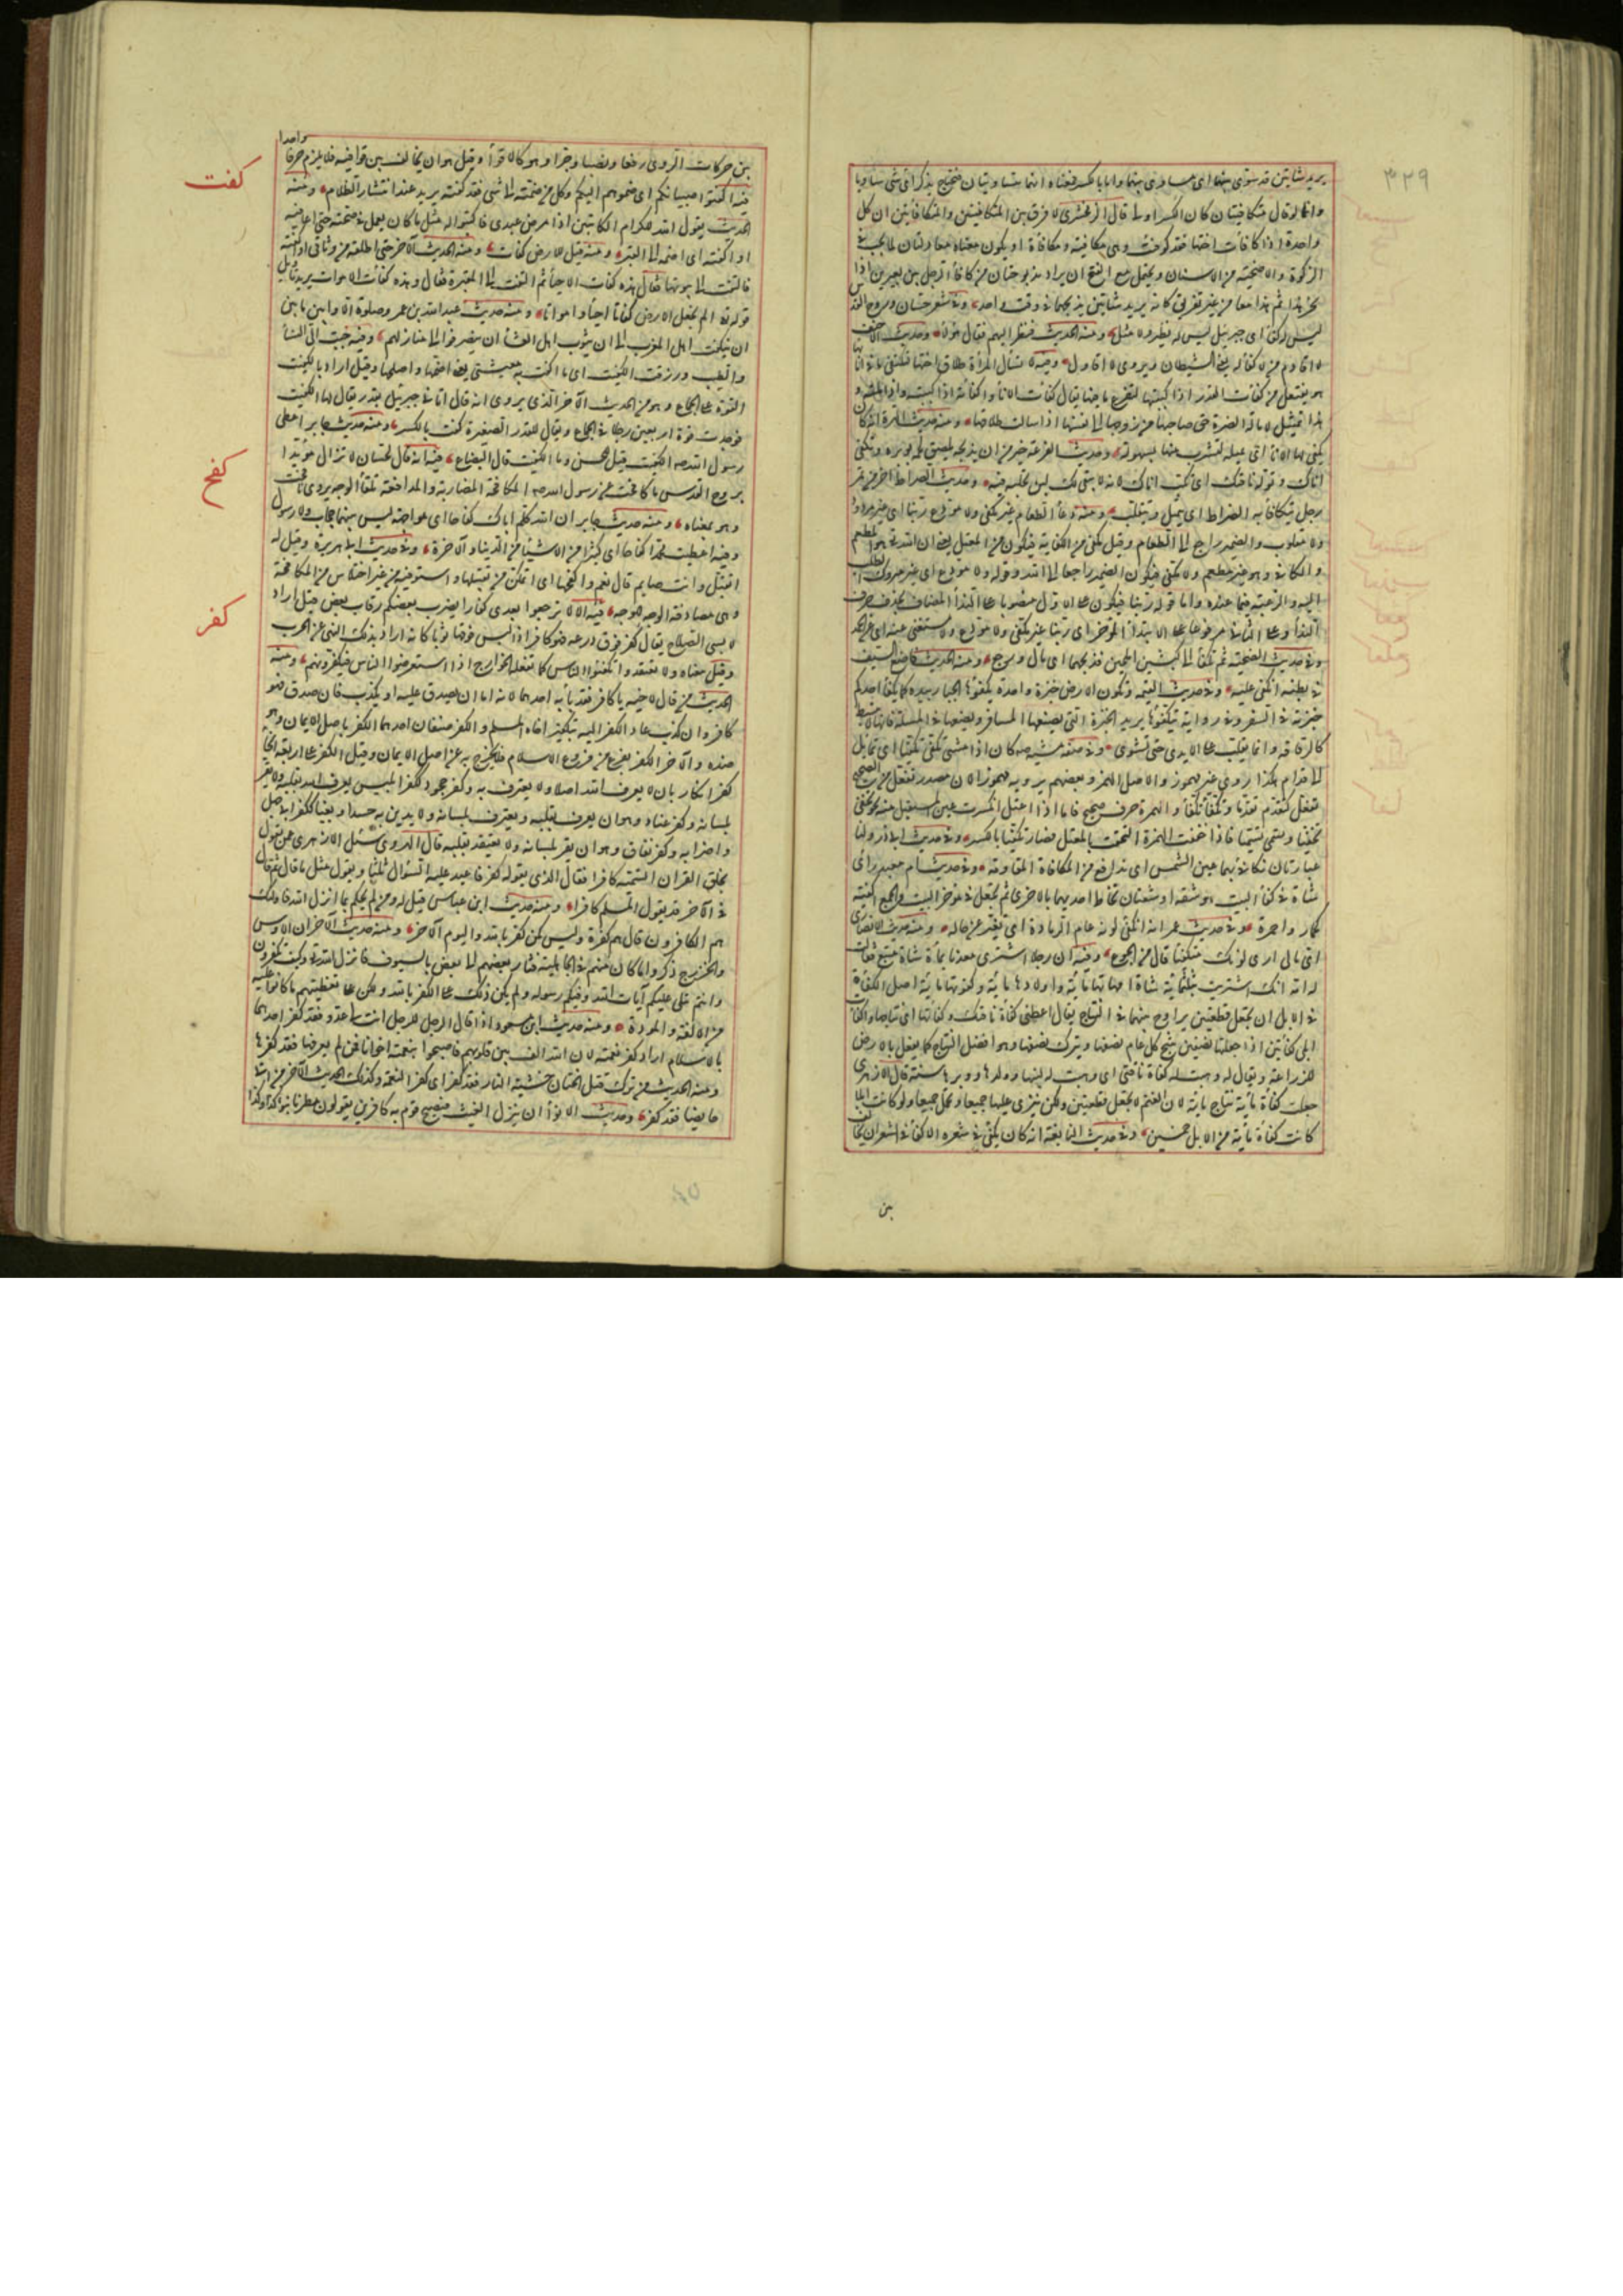 ٣٢٩
يريد شاتين قد سوى بينهما اى مساوى بينهما واما بالكسر فمعناه انهما متساويتان فيحتاج يذكر اى شئ ساويا
وانما لو قال متكافيتان كان الكسر اولى قال الزمخشرى لا فرق بين المتكافيتين والمتكافاتين لان كل
واحدة اذا كافات اختها فقد كوفئت وهى مكافية ومكافاة او يكون معناه معادلتان لما يجب فى
الزكوة والاضحية من الاسنان ويحتمل مع الفتح ان يراد مذبوحتان من كافا الرجل بين بعيرين اذا
نحر هذا ثم هذا معا من غير تفريق كانه يريد شاتين يذبحهما فى وقت واحد وفى شعر حسان وروح القدس
ليس له كفاء اى جبريل ليس له نظير ولا مثل ومنه الحديث فنظر اليهم فقال من وحديث الاحنف
لا اقاوم من لا كفاء له يعنى الشيطان ويروى لا اقاول وفيه لا تسأل المرأة طلاق اختها لتكتفئ ما فى انائها
هو تفتعل من كفات القدر اذا كببتها لتفرغ ما فيها يقال كفات الاناء واكفاته اذا كببته واذا املته و
هذا تمثيل لامالة الضرة حق صاحبتها من زوجها الى نفسها اذا سالت طلاقها ومنه حديث الهرة انه كان
يكفئ لها الاناء اى يميله لتشرب منه بسهولة وحديث الفرعة خير من ان يذبحه يلصق لحمه بوبره وتكفئ
اناءك وتوله ناقتك اى تكب اناءك لانه لا يبقى لك لبن تحلبه فيه وحديث الصراط اخر من يمر
رجل يتكفا به الصراط اى يتميل ويتقلب ومنه دعاء الطعام غير مكفئ ولا مودع ربنا اى غير مردود
ولا مقلوب والضمير راجع الى الطعام وقيل مكفى من الكفاية فيكون من المعتل يعنى ان الله تعالى هو المطعم
والكافى وهو غير مطعم ولا مكفى فيكون الضمير راجعا الى الله وقوله ولا مودع اى غير متروك الطلب
اليه والرغبة فيما عنده واما قوله ربنا فيكون على الاول منصوبا على النداء المضاف بحذف حرف
النداء وعلى الثانى مرفوعا على الابتداء المؤخر اى ربنا غير مكفى ولا مودع ولا مستغنى عنه
وفى حديث الضحية ثم انكفا الى كبشين املحين فذبحهما اى مال ورجع ومنه الحديث فاضع السيف
فى بطنه ثم انكفئ عليه وفى حديث القيمة وتكون الارض خبزة واحدة يكفؤها الجبار بيده كما يكفا احدكم
خبزته فى السفر وفى رواية يتكفؤها يريد الخبزة التى يصنعها المسافر ويضعها فى الملة فانها لا تبسط
كالرقاقة وانما تقلب على الايدى حتى تستوى وفى صفة مشيه كان اذا مشى تكفى تكفيا اى تمايل
الى قدام هكذا روى غير مهموز والاصل الهمز وبعضهم يرويه مهموزا لان مصدر تفعل من الصحيح
تفعل كتقدم تقدما وتكفا تكفؤا والهمزة حرف صحيح فاما اذا اعتل انكسرت عين المستقبل منه نحو تخفى
تخفيا وتسمى تسميا فاذا خففت الهمزة التحقت بالمعتل فصار تكفيا بالكسر وفى حديث ابى ذر ولنا
عباءتان نكافئ بهما عين الشمس اى ندافع من المكافاة المقاومة وفى حديث ام معبد رأى
شاة فى كفاء البيت هو شقة او شقتان تخاط احديهما بالاخرى ثم يجعل فى موخر البيت والجمع اكفية
كحمار واحمرة وفى حديث عمر انه انكفئ لونه عام الرمادة اى تغير عن حاله ومنه حديث الانصارى
اتى ما لى ارى لونك منكفئا قال من الجوع وفيه ان رجلا اشترى معدنا بمائة شاة متبع فقالت
له امه انك اشتريت بثلثماية شاة امهاتها ماية واولادها ماية وكفوتها ماية اصل الكفاة
فى الابل ان تجعل قطعتين يراوح بينهما فى النتاج يقال اعطنى كفاة ناقتك وكفاتها اى نتاجها واكفات
ابلى كفاتين اذا جعلتها نصفين ينتج كل عام نصفها ويترك نصفها وهو افضل النتاج كما يفعل بالارض
للزراعة ويقال له وهبت له كفاة ناقتى اى وهبت له لبنها وولدها ووبرها سنة قال الازهرى
جعلت كفاة ماية نتاج ماية لان الغنم لا تجعل قطعتين ولكن ينزى عليها جميعا وتحمل جميعا ولو كانت ابلا
كانت كفاة ماية من الابل خمسين وفى حديث النابغة انه كان يكفئ فى شعره الاكفاء فى الشعر ان يخالف
بين
واحدا
بين حركات الروى رفعا ونصبا وجرا وهو كالاقواء وقيل هو ان يخالف بين قوافيه فلا يلزم حرفا
كفت
فيه اكفتوا صبيانكم اى ضموهم اليكم وكل من ضممته الى شئ فقد كفته يريد عند انتشار الظلام ومنه
الحديث يقول الله للكرام الكاتبين اذا مرض عبدى فاكتبوا له مثل ما كان يعمل فى صحته حتى اعافيه
او اكفته اى اضمه الى القبر ومنه قيل للارض كفات ومنه الحديث الاخر حتى اطلقه من وثاقى او اكفته
فالتفت الى بيوتها فقال هذه كفات الاحياء ثم التفت الى المقبرة فقال وهذه كفات الاموات يريد تاويل
قوله تعالى الم نجعل الارض كفاتا احياء وامواتا ومنه حديث عبد الله بن عمر وصلوة الاوابين ما بين
ان ينكفت اهل المغرب الى ان يثوب اهل العشاء ان ينصرفوا الى منازلهم وفيه حبب الى النساء
والطيب ورزقت الكفيت اى ما اكفت به معيشتى يعنى اضمها واصلحها وقيل اراد بالكفيت
القوة على الجماع وهو من الحديث الاخر الذى يروى انه قال اتانى جبريل بقدر يقال لها الكفيت
فوجدت قوة اربعين رجلا فى الجماع ويقال للقدر الصغيرة كفت بالكسر ومنه حديث جابر اعطى
رسول الله الكفيت قيل للحسن وما الكفيت قال البضاع
كفح
فيه انه قال لحسان لا تزال مؤيدا
بروح القدس ما كافحت عن رسول الله المكافحة المضاربة والمدافعة تلقاء الوجه ويروى نافحت
وهو بمعناه ومنه حديث جابر ان الله كلم اباك كفاحا اى مواجهة ليس بينهما حجاب ولا رسول
وفيه اعطيت محمدا كفاحا اى كثيرا من الاشياء من الدنيا والاخرة وفى حديث ابى هريرة وقيل له
اتقبل وانت صايم قال نعم واكفحها اى اتمكن من تقبيلها واستوفيه من غير اختلاس من المكافحة
وهى مصادفة الوجه للوجه
كفر
فيه الا لا ترجعوا بعدى كفارا يضرب بعضكم رقاب بعض قيل اراد
لابسى السلاح يقال كفر فوق درعه فهو كافر اذا لبس فوقها ثوبا كانه اراد بذلك النهى عن الحرب
وقيل معناه ولا تعتقدوا تكفير الناس كما تفعله الخوارج اذا استعرضوا الناس فيكفرونهم ومنه
الحديث من قال لاخيه يا كافر فقد باء به احدهما لانه اما ان يصدق عليه او يكذب فان صدق فهو
كافر وان كذب عاد الكفر اليه بتكفيره اخاه المسلم والكفر صنفان احدهما الكفر باصل الايمان وهو
ضده والاخر الكفر بفرع من فروع الاسلام فلا يخرج به عن اصل الايمان وقيل الكفر على اربعة انحاء
كفر انكار بان لا يعرف الله اصلا ولا يعترف به وكفر جحود ككفر ابليس يعرف الله بقلبه ولا يقر
بلسانه وكفر عناد وهو ان يعرف بقلبه ويعترف بلسانه ولا يدين به حسدا وبغيا ككفر ابى جهل
واضرابه وكفر نفاق وهو ان يقر بلسانه ولا يعتقد بقلبه قال الهروى سئل الازهرى عمن يقول
بخلق القران انسميه كافرا فقال الذى يقوله كفر فاعيد عليه السؤال ثلثا ويقول مثل ما قال ثم قال
فى الاخر قد يقول المسلم كفرا ومنه حديث ابن عباس قيل له ومن لم يحكم بما انزل الله فاولئك
هم الكافرون قال هم كفرة وليس كمن كفر بالله واليوم الاخر ومنه حديث الاخر ان الاوس
والخزرج ذكروا ما كان منهم فى الجاهلية فثار بعضهم الى بعض بالسيوف فانزل الله تعالى وكيف تكفرون
وانتم تتلى عليكم آيات الله وفيكم رسوله ولم يكن ذلك على الكفر بالله ولكن على تغطيتهم ما كانوا عليه
من الالفة والمودة ومنه حديث ابن مسعود اذا قال الرجل للرجل انت لى عدو فقد كفر احدهما
بالاسلام اراد كفر نعمته لان الله الف بين قلوبهم فاصبحوا بنعمته اخوانا فمن لم يعرفها فقد كفرها
ومنه الحديث من ترك قتل الحيات خشية النار فقد كفر اى كفر النعمة وكذلك الحديث الاخر من اتى
حايضا فقد كفر وحديث الانواء ان الله ينزل الغيث فيصبح قوم به كافرين يقولون مطرنا بنوء كذا وكذا